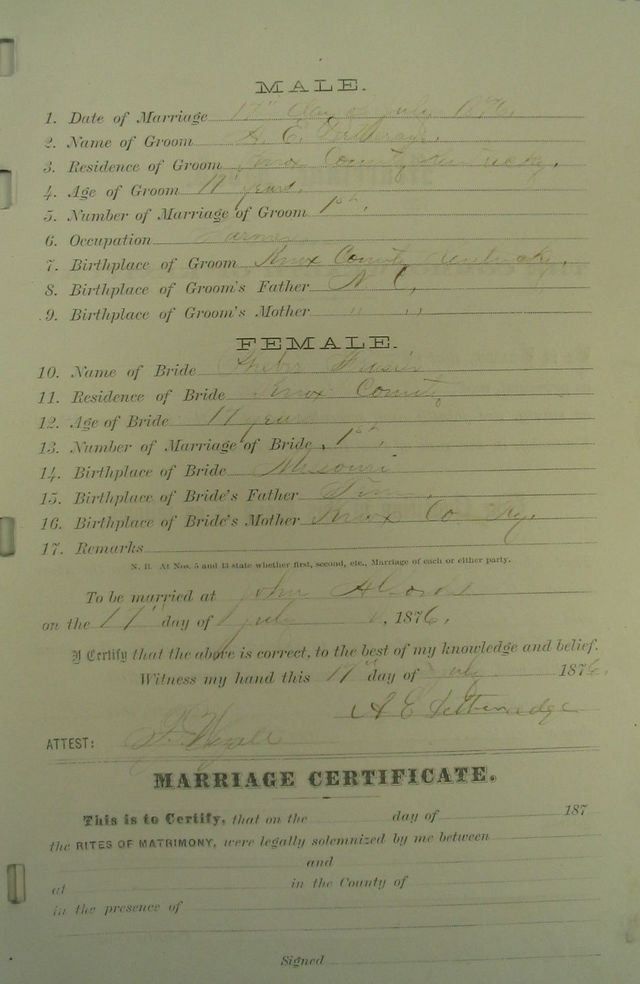 MALE.
1. Date of Marriage 17" day of july 1876.
2. Name of Groom A. E.
3. Residence of Groom Knox County Kentucky.
4. Age of Groom years.
5. Number of Marriage of Groom 1st.
6. Occupation Farmer
7. Birthplace of Groom Knox County Kentucky.
8. Birthplace of Groom's Father N. C,
9. Birthplace of Groom's Mother " "
FEMALE.
10. Name of Bride
11. Residence of Bride Knox County
12. Age of Bride 17 years
13. Number of Marriage of Bride 1st.
14. Birthplace of Bride Missouri
15. Birthplace of Bride's Father Tenn.
16. Birthplace of Bride's Mother Knox Co Ky.
17. Remarks
N. B. At Nos. 5 and 13 state whether first, second, etc., Marriage of each or either party.
To be married at John
on the 17" day of july, 1876.
I Certify that the above is correct, to the best of my knowledge and belief.
Witness my hand this 17" day of july 1876.
A E
ATTEST:
MARRIAGE CERTIFICATE.
This is to Certify, that on the day of 187
the RITES OF MATRIMONY, were legally solemnized by me between
and
at in the County of
in the presence of
Signed